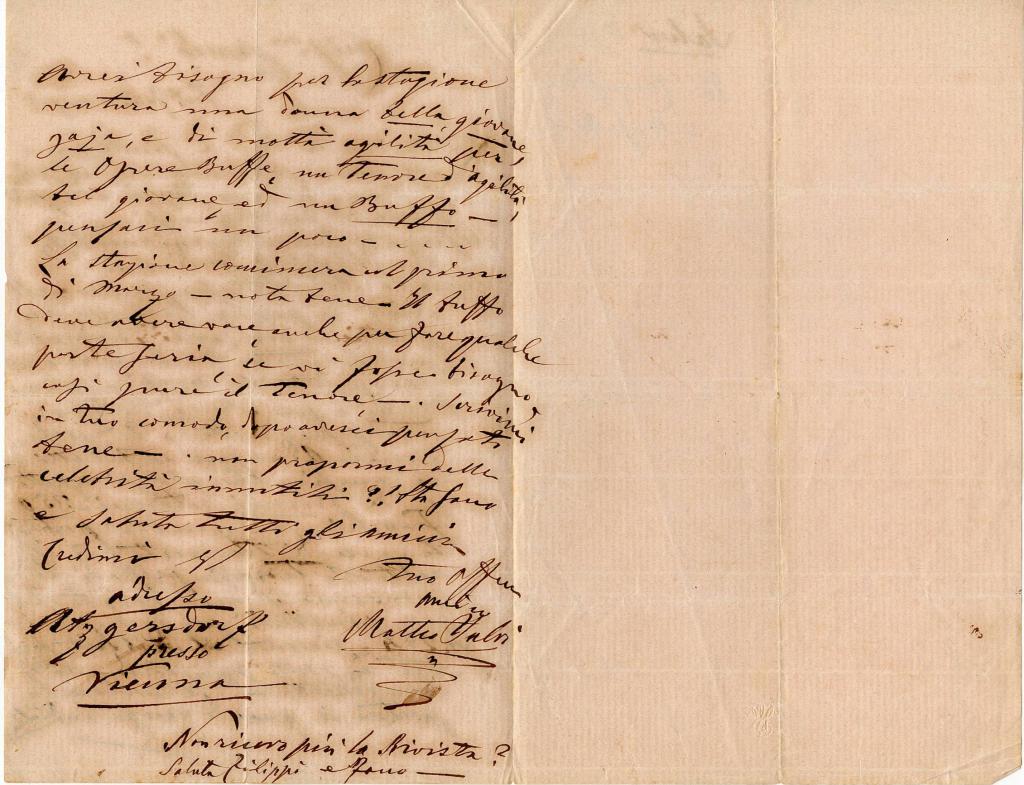 Avrei bisogno per la stagione
ventura una donna bella giovane,
gaja, e di molta agilità per
le Opere Buffe, un Tenore d'agilità,
bel giovane, ed un Buffo —
pensaci un poco — - - -
La stagione comincera col primo
di Marzo — nota bene Il buffo
deve avere voce anche per fare qualche
parte seria, se vi fosse bisogno,
così pure il Tenore, — . Scrivimi
in tuo comodo, dopo averci pensato
bene — . non propormi delle
celebrità inutili ?! Sta sano
e saluta tutti gli amici
Credimi
Tuo affmo
amico
Matteo Salvi
adresso
Atzgersdorf
presso
Vienna
Non ricevo più la Rivista ?
Saluta Filippi e Fano —